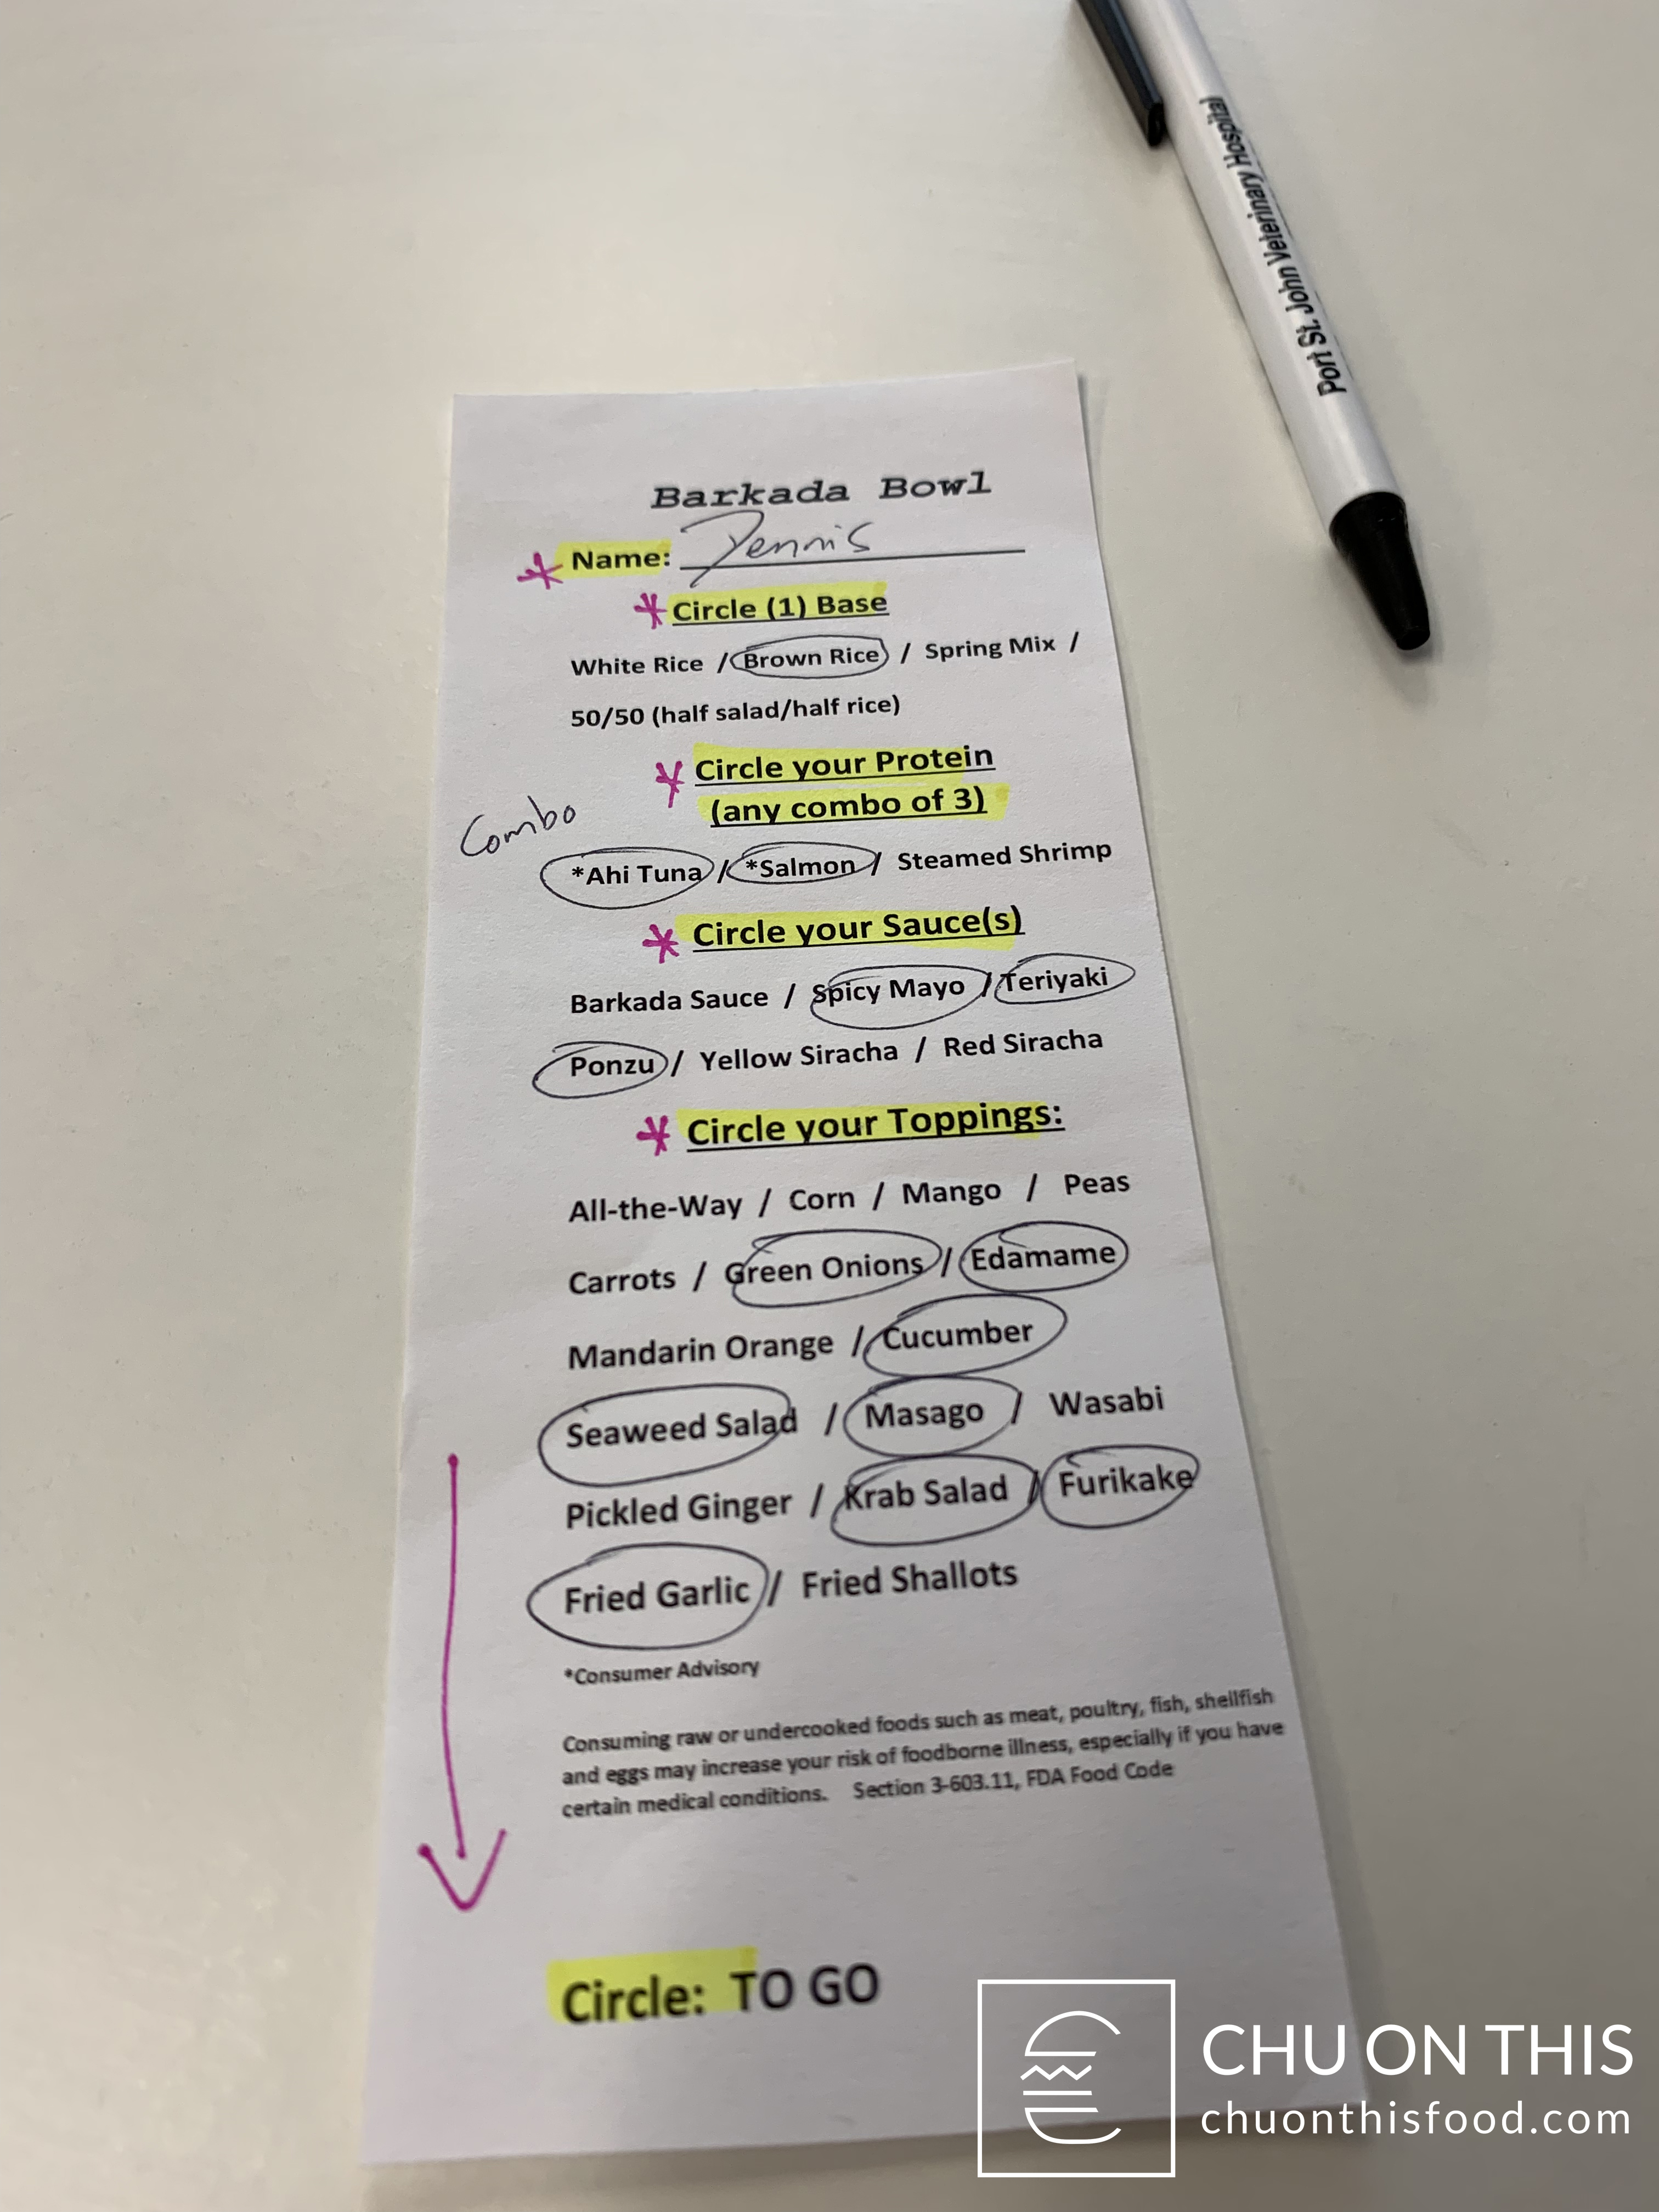 Port St. John Veterinary Hospital
Barkada Bowl
Name: Dennis
Circle (1) Base
White Rice / Brown Rice / Spring Mix /
50/50 (half salad/half rice)
Circle your Protein
(any combo of 3)
Combo
*Ahi Tuna / *Salmon / Steamed Shrimp
Circle your Sauce(s)
Barkada Sauce / Spicy Mayo / Teriyaki
Ponzu / Yellow Siracha / Red Siracha
Circle your Toppings:
All-the-Way / Corn / Mango / Peas
Carrots / Green Onions / Edamame
Mandarin Orange / Cucumber
Seaweed Salad / Masago / Wasabi
Pickled Ginger / Krab Salad / Furikake
Fried Garlic / Fried Shallots
*Consumer Advisory
Consuming raw or undercooked foods such as meat, poultry, fish, shellfish
and eggs may increase your risk of foodborne illness, especially if you have
certain medical conditions. Section 3-603.11, FDA Food Code
Circle: TO GO
CHU ON THIS
chuonthisfood.com